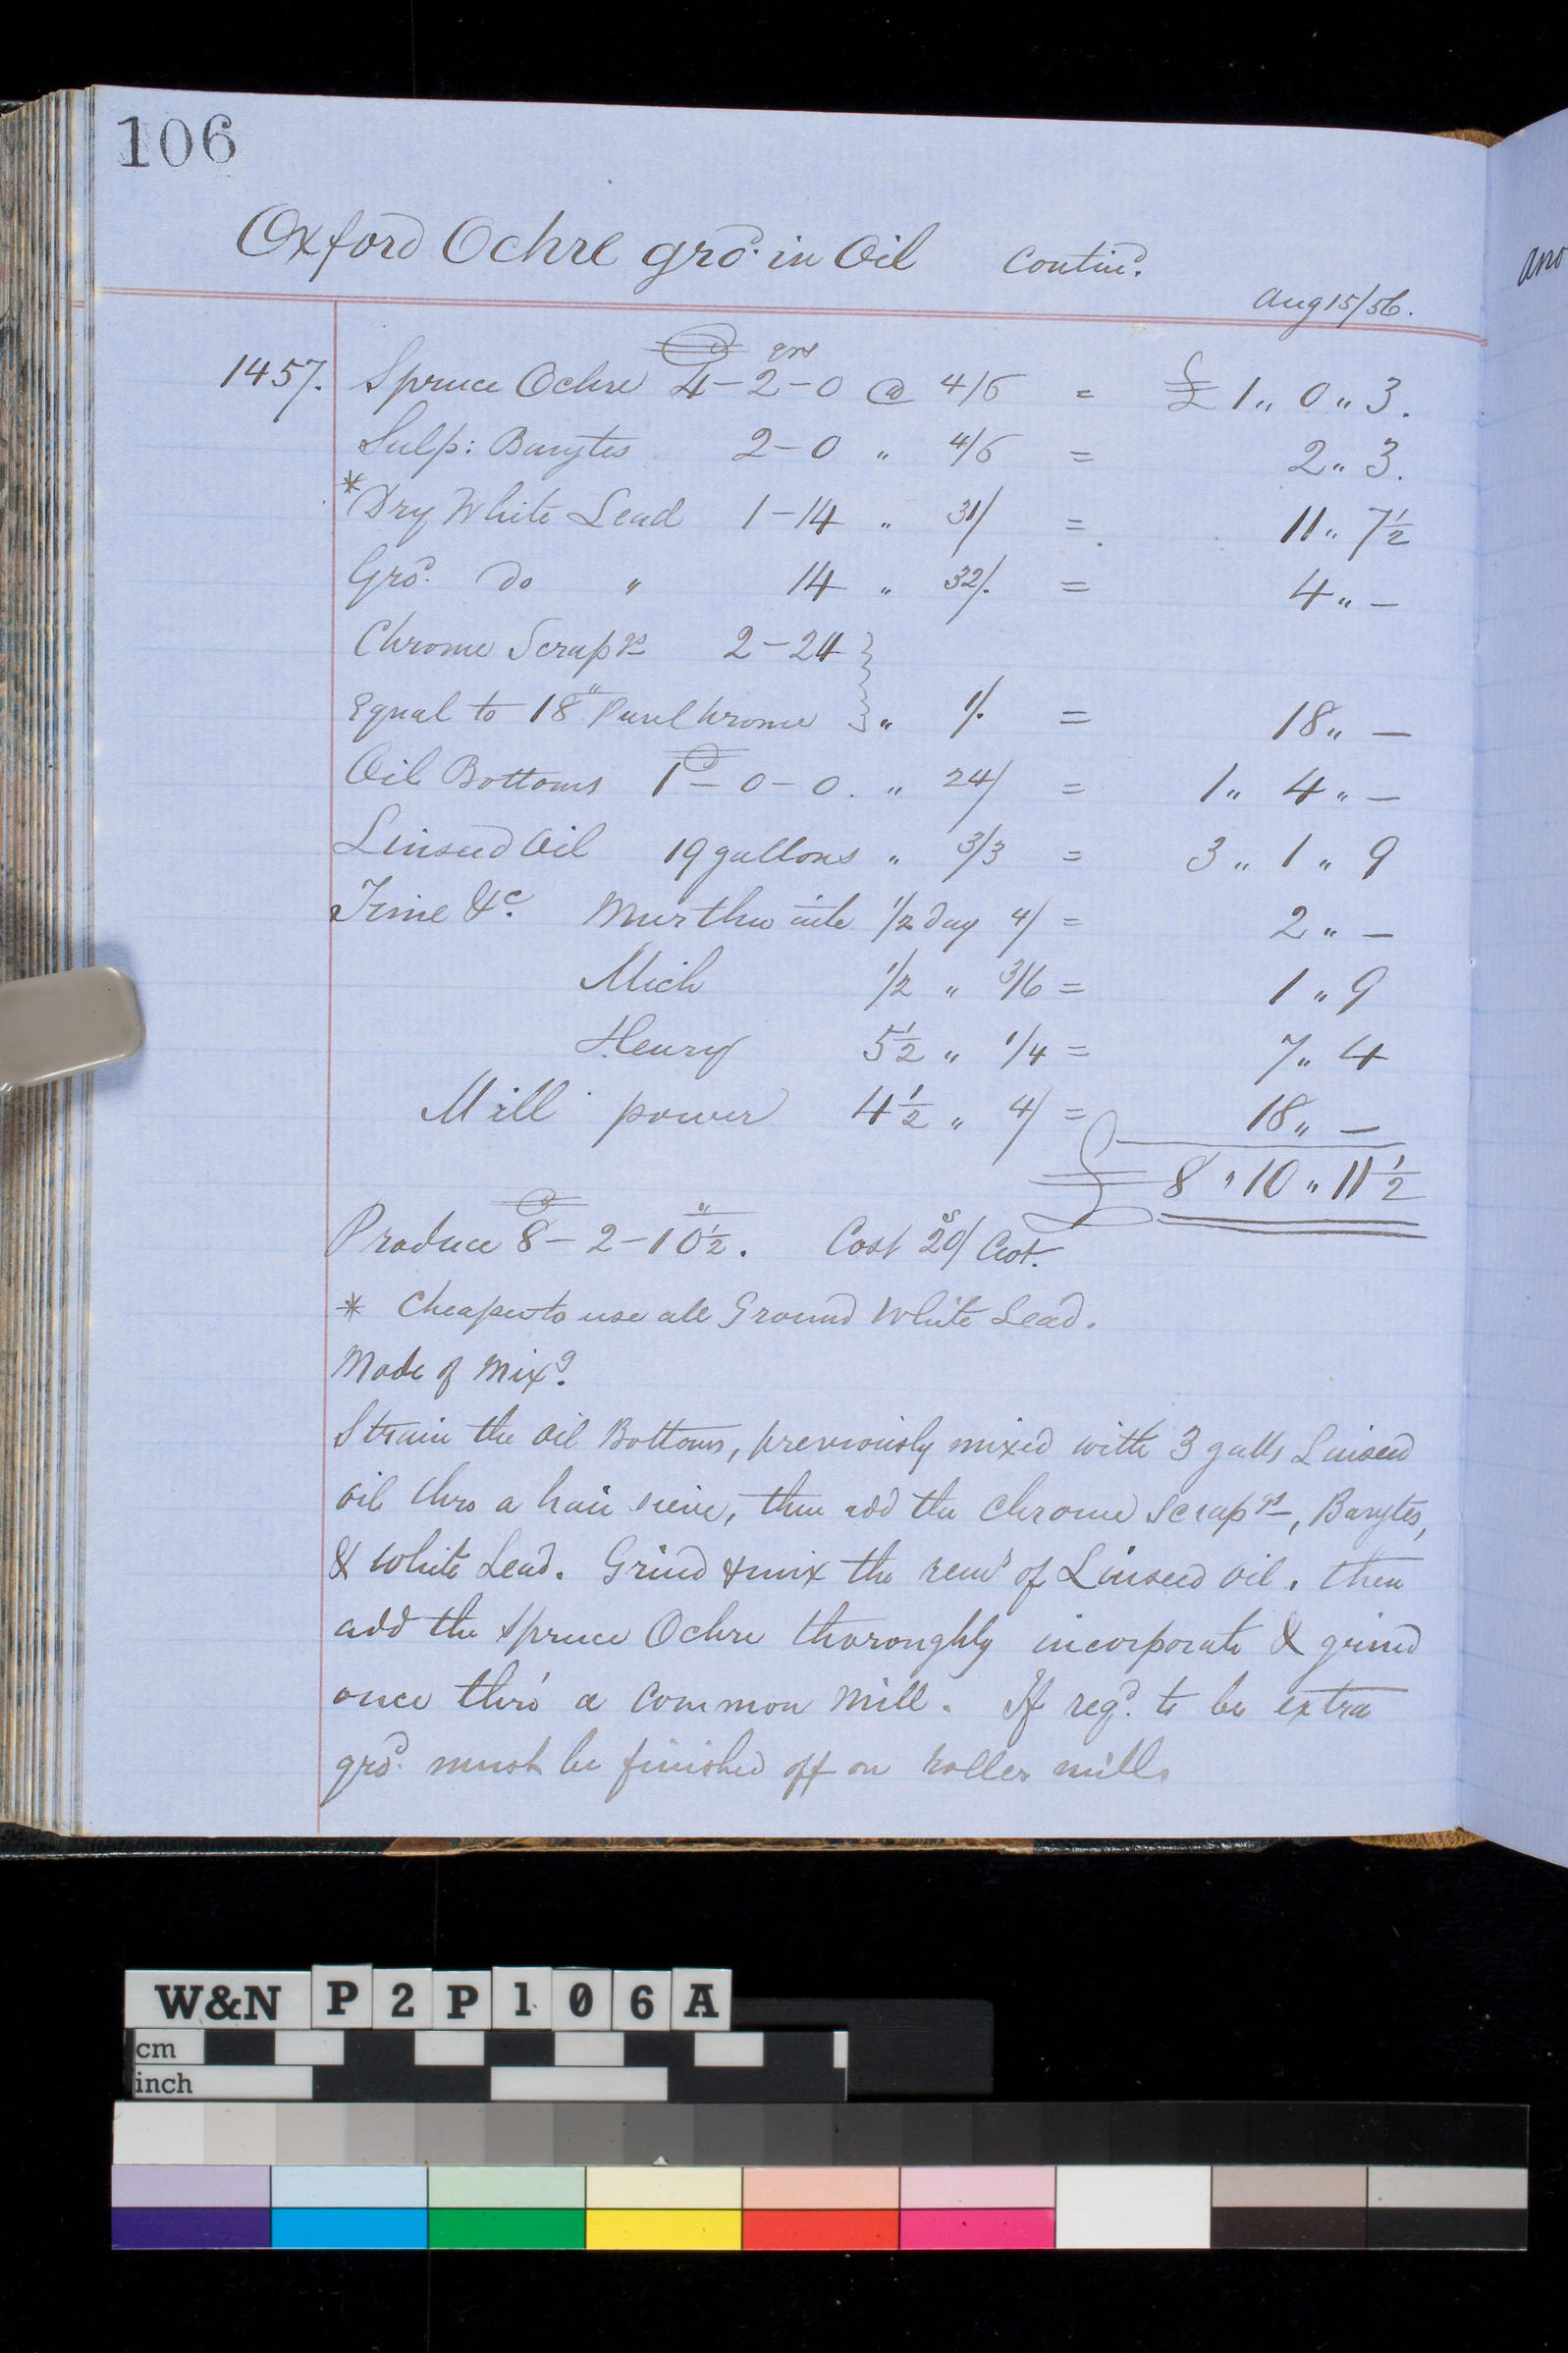 106
Oxford Ochre gro^d. in Oil contin^d.
Aug 15/56.
ano
1457. Spruce Ochre 4 - 2 - 0 @ 4/6 = £ 1 „ 0 „ 3.
qrs
Sulp: Barytes 2 - 0 „ 4/6 = 2 „ 3.
* Dry White Lead 1 - 14 „ 31/ = 11 „ 7½
Gro^d. do „ 14 „ 32/. = 4 „ —
Chrome Scrap^gs 2 - 24 }
Equal to 18" Pure Chrome } „ 1/. = 18 „ —
Oil Bottoms 1 - 0 - 0. „ 24/ = 1 „ 4 „ —
Linseed Oil 19 gallons „ 3/3 = 3 „ 1 „ 9
Time &c. Murthwaite ½ day 4/ = 2 „ —
Mich ½ „ 3/6 = 1 „ 9
Henry 5½ „ 1/4 = 7 „ 4
Mill power 4½ „ 4/ = 18 „ —
£ 8 „ 10 „ 11½
Produce 8 - 2 - 10½. Cost 20/ Cwt.
* Cheaper to use all Ground White Lead.
Mode of Mix^g.
Strain the Oil Bottoms, previously mixed with 3 galls Linseed
oil thro a hair sieve, then add the Chrome scrap^gs, Barytes,
& White Lead. Grind & mix the rem^r of Linseed oil. then
add the Spruce Ochre thoroughly incorporate & grind
once thro' a common Mill. If req^d. to be extra
gro^d. must be finished off on roller mills
W&N P2P106A
cm
inch